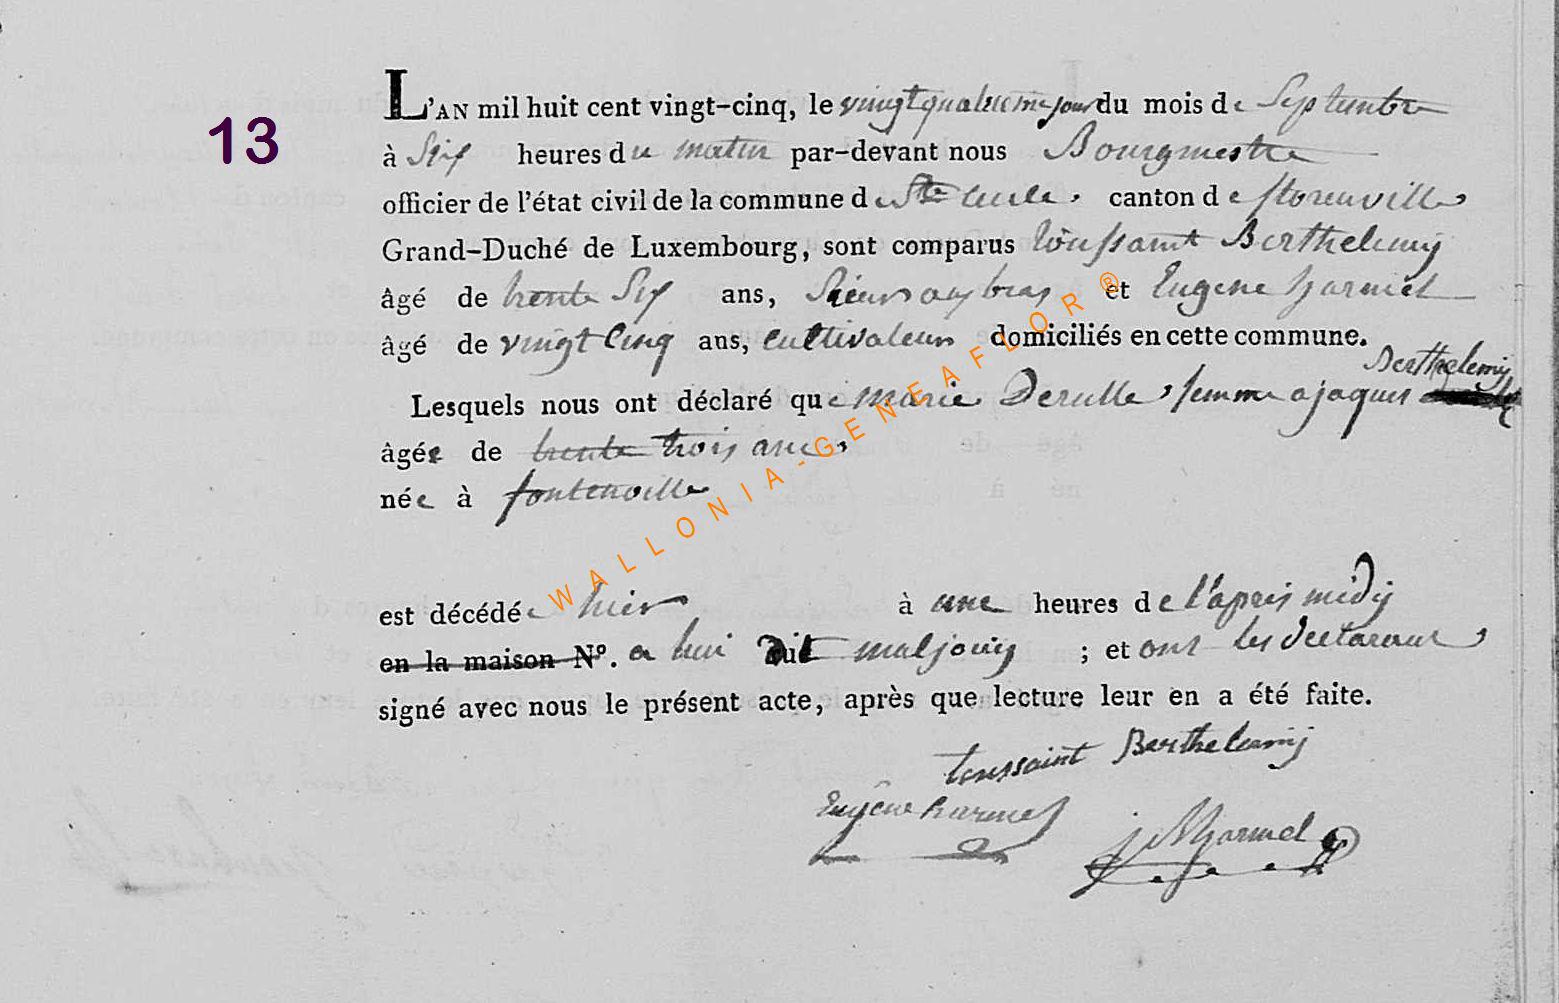 13
L'AN mil huit cent vingt-cinq, le vingt quatrieme jour du mois de Septembre
à Six heures du matin par-devant nous Bourgmestre
officier de l'état civil de la commune de Ste Cecile, canton de florenville
Grand-Duché de Luxembourg, sont comparus toussaint Berthelemy
âgé de trente Six ans, et Eugene harmel
âgé de vingt Cinq ans, cultivateurs domiciliés en cette commune.
Berthelemy
Lesquels nous ont déclaré que marie Derulle, femme a jaques
âgée de trente trois ans,
née à fontenoille
est décédée hier à une heures de l'apres midy
en la maison N°. a lieu dit maljouy ; et ont les declarants
signé avec nous le présent acte, après que lecture leur en a été faite.
toussaint Berthelemy
Eugêne harmel
j N harmel
WALLONIA-GENEAFLOR®